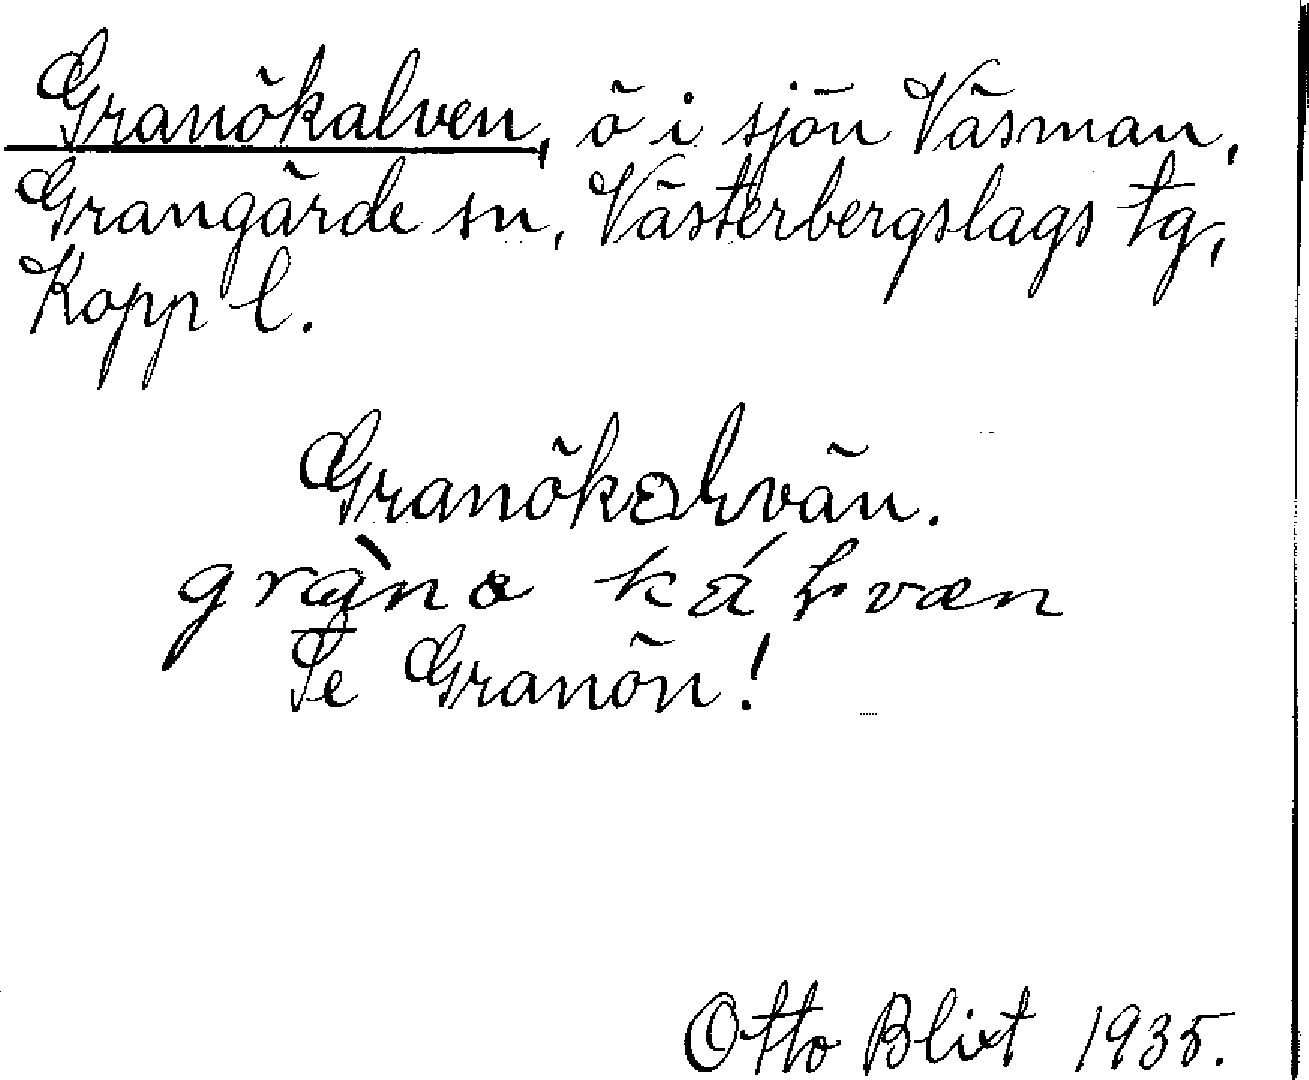 Granökalven, ö i sjön Väsman,
Grangärde sn, Västerbergslags tg,
Kopp l.
Granökalvän.
Se Granön!
Otto Blixt 1935.